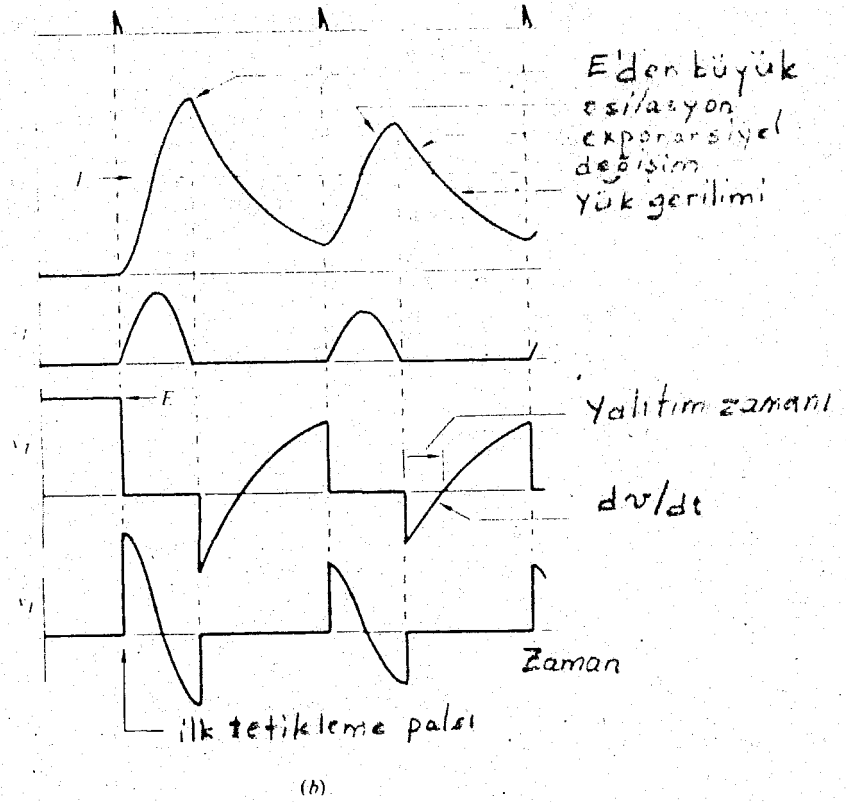 E'den büyük
osilasyon
exponansiyel
değişim
yük gerilimi
E
Yalıtım zamanı
dv/dt
Zaman
ilk tetikleme palsı
(b)